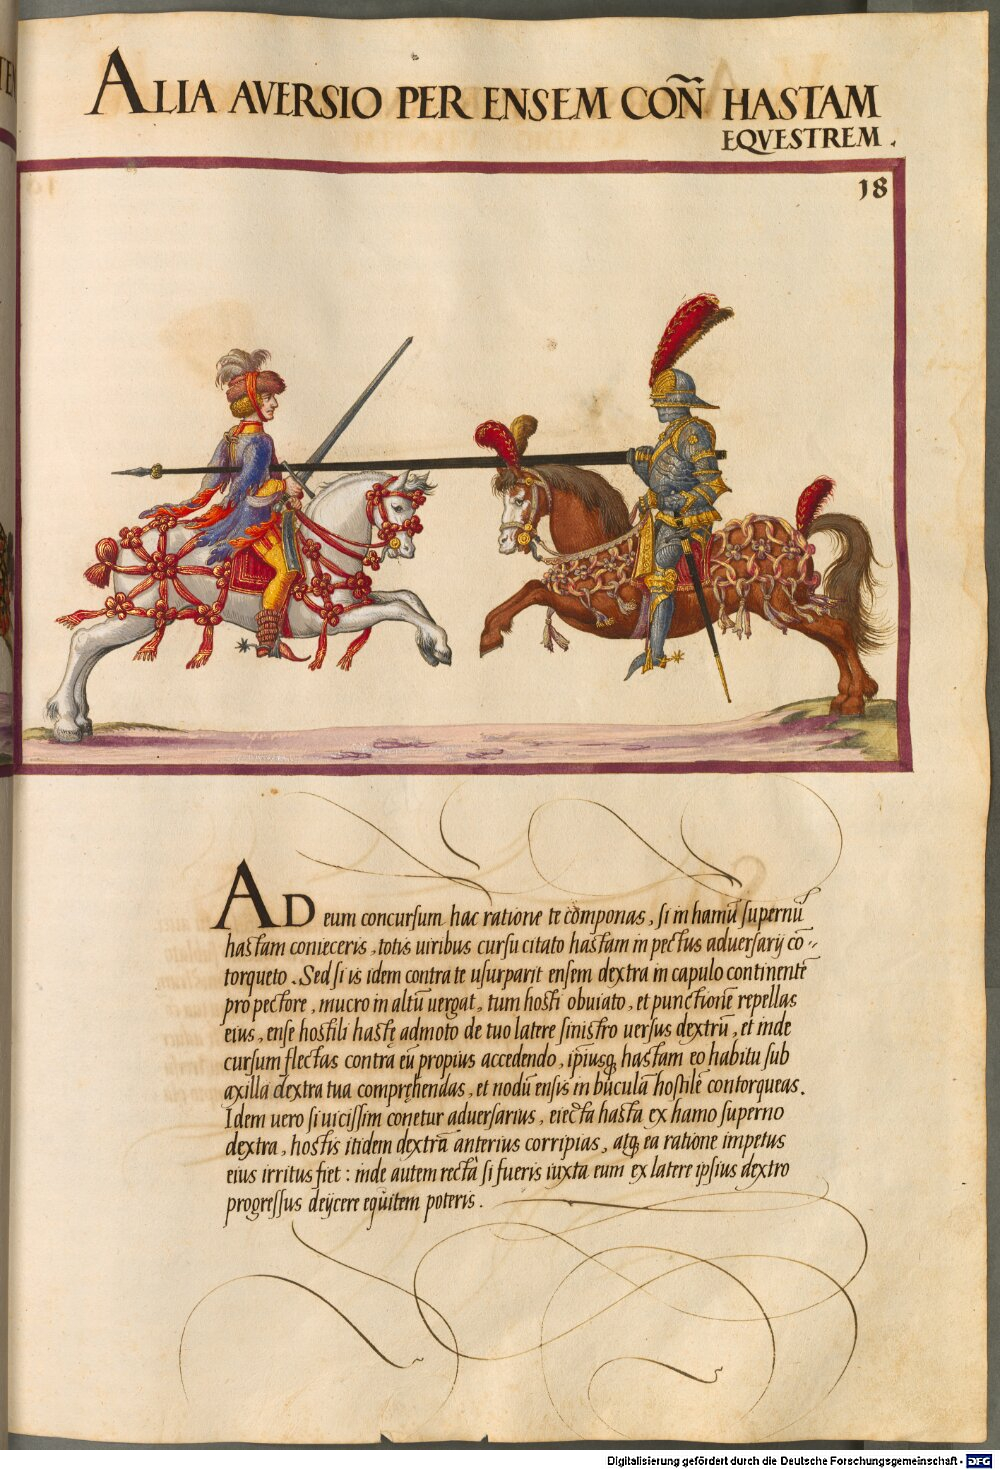 ALIA AVERSIO PER ENSEM COÑ HASTAM
EQVESTREM.
18
AD eum concurſum hac ratione te cōponas, ſi in hamū ſupernū
haſtam conieceris, totis uiribus curſu citato haſtam in pectus aduerſarij cō=
torqueto. Sed ſi is idem contra te uſurparit enſem dextra in capulo continentē
pro pectore, mucro in altū uergat, tum hoſti obuiato, et punctionē repellas
eius, enſe hoſtili haſtę admoto de tuo latere ſiniſtro uerſus dextrū, et inde
curſum flectas contra eū propius accedendo, ipiusq, haſtam eo habitu ſub
axilla dextra tua compręhendas, et nodū enſis in buculā hoſtilē contorqueas.
Idem uero ſi uiciſſim conetur aduerſarius, eiecta haſta ex hamo ſuperno
dextra, hoſtis itidem dextrā anterius corripias, atq, ea ratione impetus
eius irritus fiet: inde autem rectā ſi fueris iuxta eum ex latere ipſius dextro
progreſſus deijcere equitem poteris.
Digitalisierung gefördert durch die Deutsche Forschungsgemeinschaft - DFG